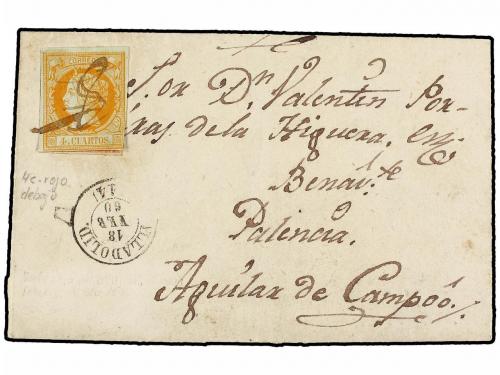 CORREOS
4 CUARTOS
S.or Dn. Valentin Por-
ras de la Higuera, en
Benav.te
Palencia.
Aguilar de Campoó.
4c. rojo
debajo
VALLADOLID.
18
FEB
60